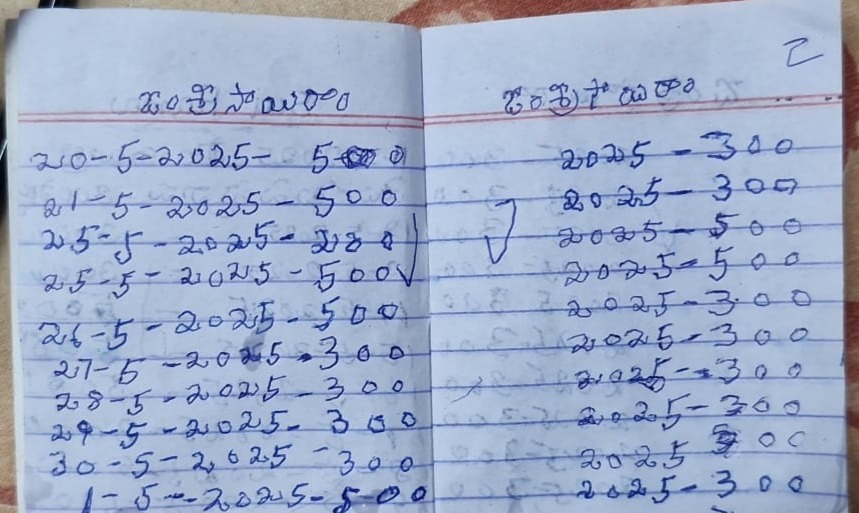 ಓಂ ಶ್ರೀ ಸಾಯಿರಾಂ
20-5-2025- 500
21-5-2025-500
25-5-2025-200
25-5-2025-500
26-5-2025-500
27-5-2025-300
28-5-2025-300
29-5-2025-300
30-5-2025-300
1-5-2025-500
2
ಓಂ ಶ್ರೀ ಸಾಯಿರಾಂ
2025-300
2025-300
2025-500
2025-500
2025-300
2025-300
2025-300
2025-300
2025
2025-300